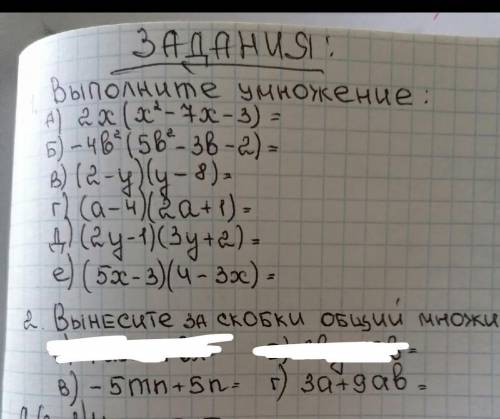 ЗАДАНИЯ:
Выполните умножение:
А) 2x(x²-7x-3)=
Б) -4в²(5в²-3в-2)=
в) (2-y)(y-8)=
г) (a-4)(2a+1)=
Д) (2y-1)(3y+2)=
е) (5x-3)(4-3x)=
2. Вынесите за скобки общий множи
в) -5mn+5n= г) 3a+9aв=